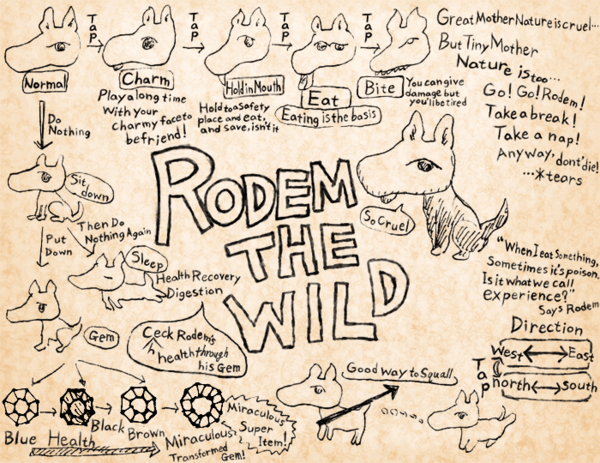 Tap
Tap
Tap
Tap
Normal
Charm
Hold in Mouth
Eat
Bite
Play along time
With your
charmy face to
befriend!
Hold to a Safety
place and eat,
and save, isn't it
Eating is the basis
You can give
damage but
you'll be tired
Great Mother Nature is cruel...
But Tiny Mother
Nature is too...
Go! Go! Rodem!
Take a break!
Take a nap!
Anyway, dont' die!
...*tears
Do
Nothing
Sit
down
Then Do
Nothing Again
Put
Down
Sleep
Health Recovery
Digestion
Gem
Ceck Rodem's
health through
his Gem
RODEM
THE
WILD
So Cruel
"When I eat Something,
Sometimes it's poison.
Is it what we call
experience?"
Says Rodem
Direction
West
East
Tap
north
south
Good way to Squall
Blue
Health
Black
Brown
Miraculous
Transformed Gem!
Miraculous
Super
Item!